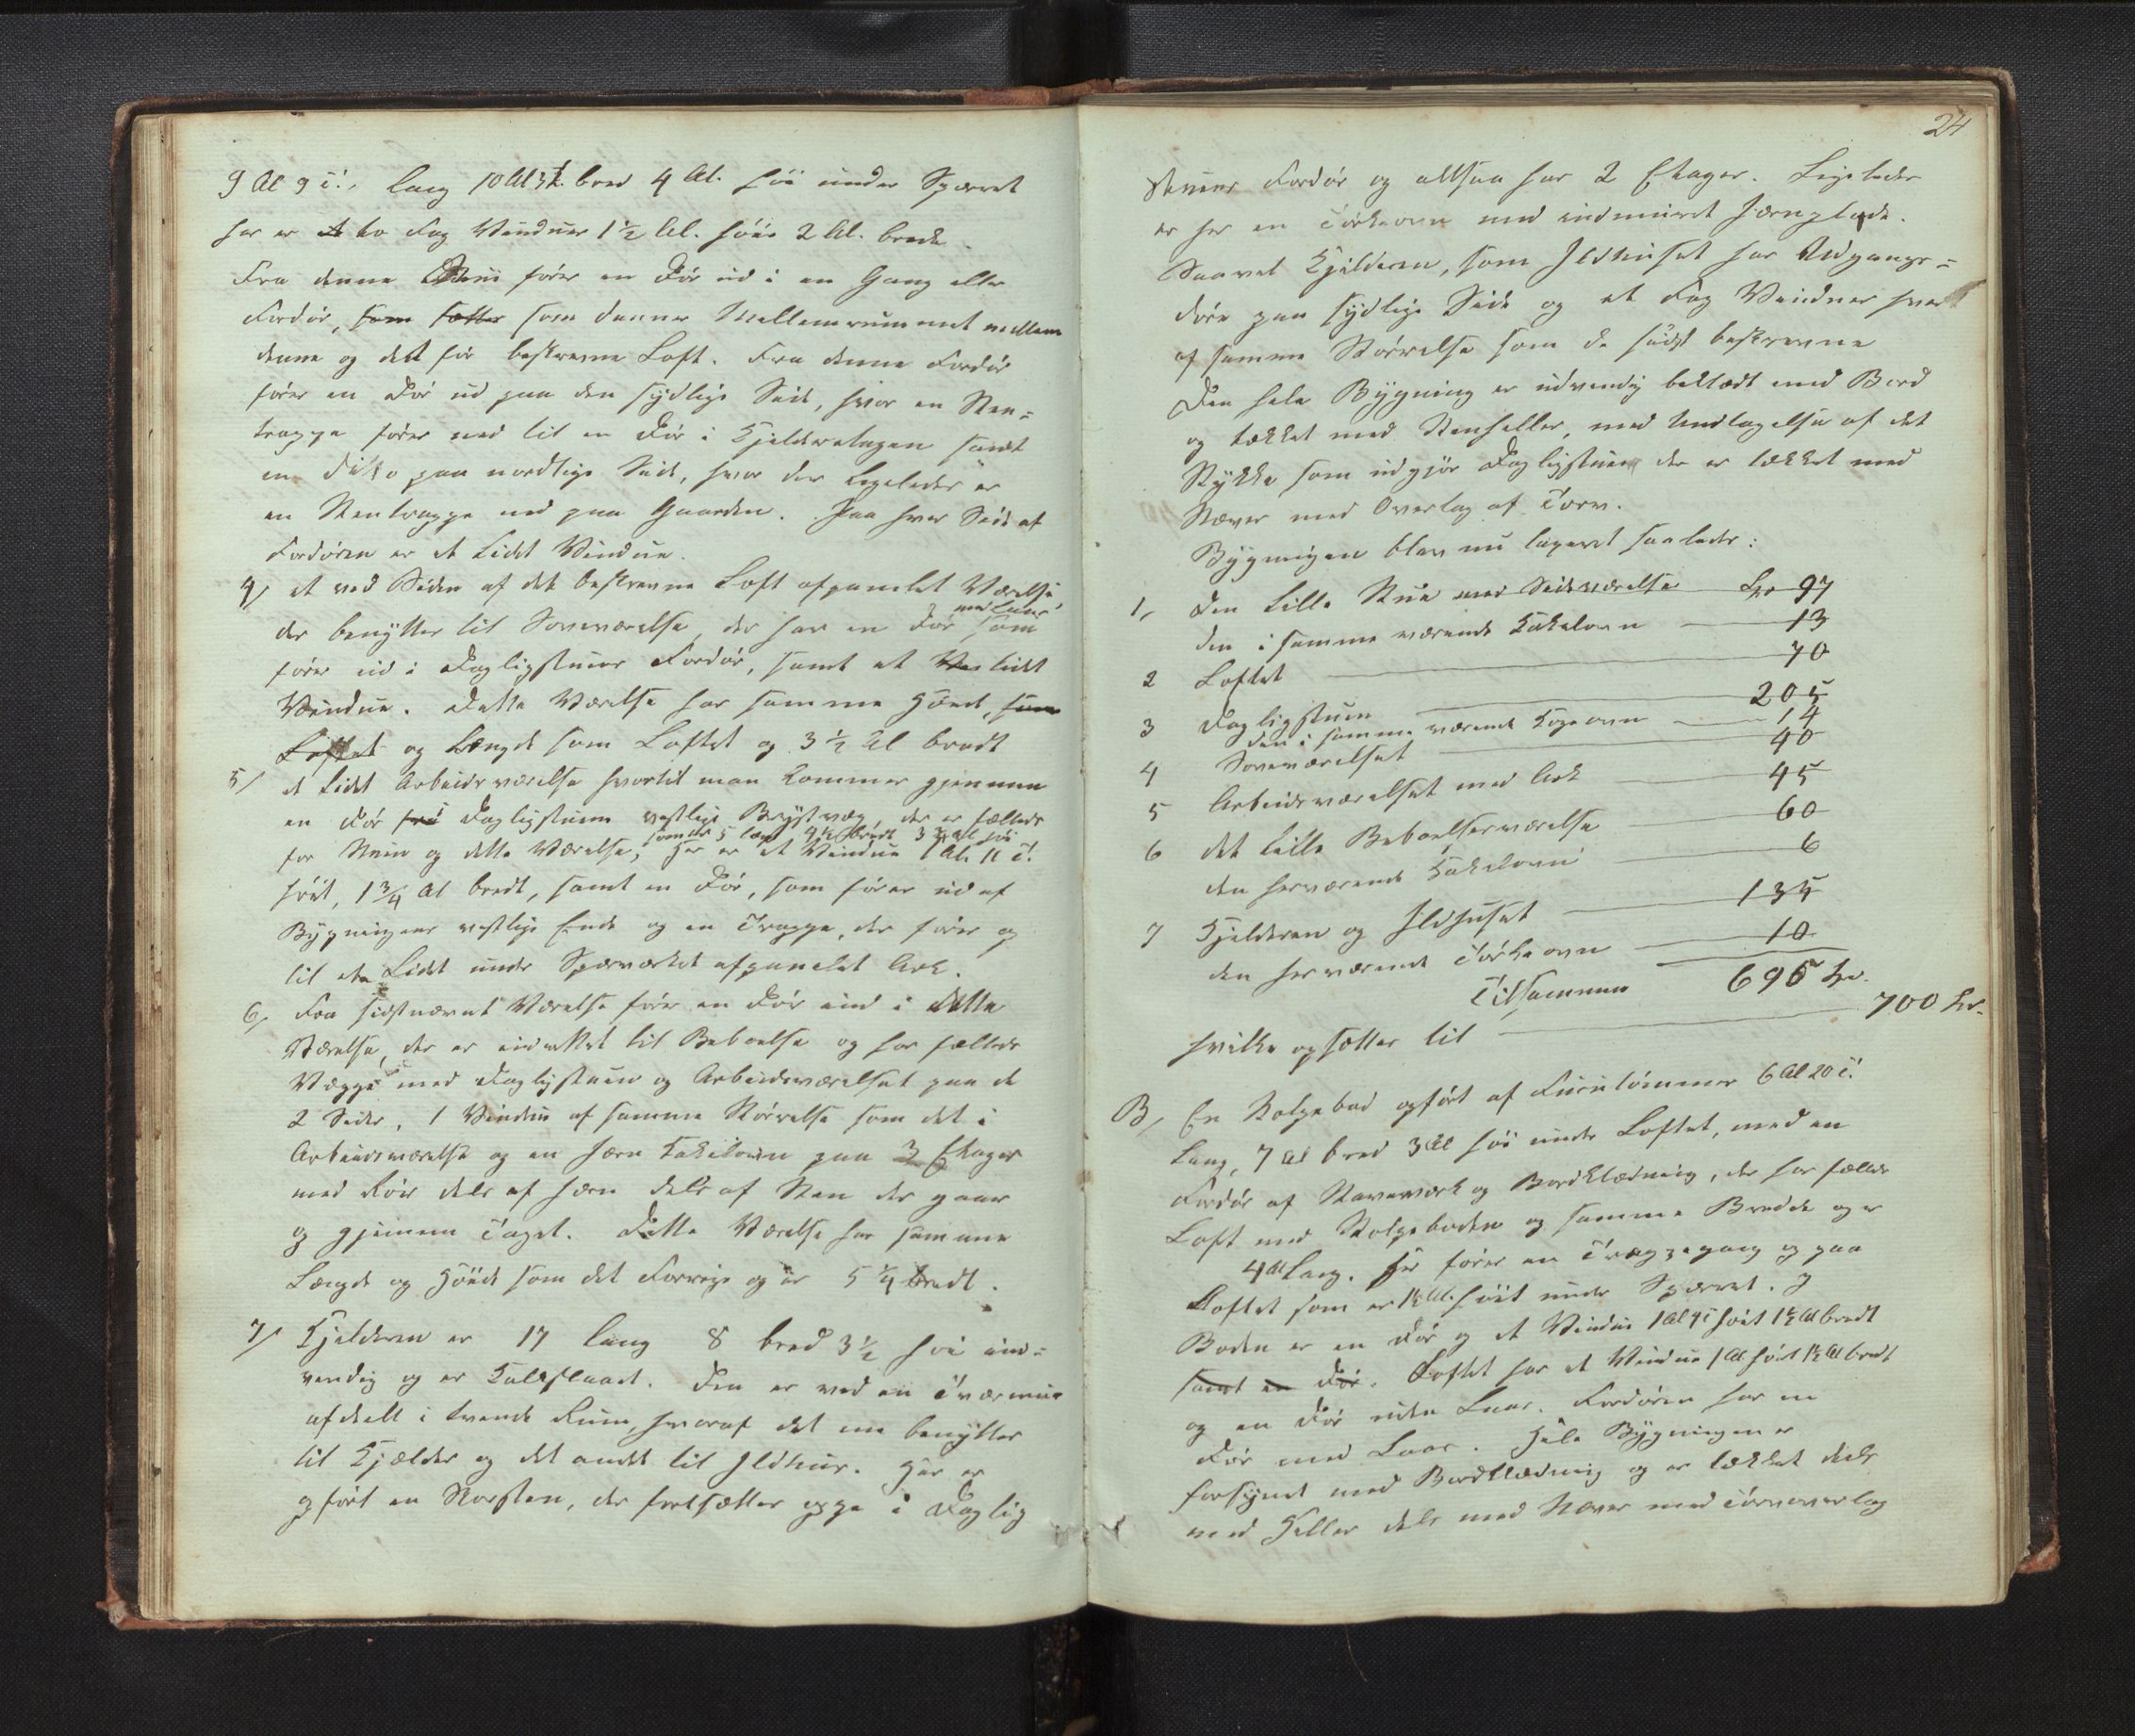 9 Al 9 T., lang 10 Al 3 T. bred 4 Al. høi under Sperret
her er et to Fag Vinduer 1 1/2 Al. høie 2 Al. brede.
Fra denne Stue fører en Dør ud i en Gang eller
Fordør, som sætter som danner Mellemrummet mellem
denne og det før beskrevne Loft. Fra denne Fordør
fører en Dør ud paa den sydlige Side, hvor en Sten=
trappe fører ned til en Dør i Kjelderetagen samt
en dito paa nordlige Side, hvor der ligeledes er
en Stentrappe ned paa Gaarden. Paa hver Side af
Fordøren er et lidet Vindue.
4, et ved Siden af det beskrevne Loft afpanelet Værelse
med Laas
der benyttes til Soveværelse, der har en Dør som
fører ud i Dagligstuens Fordør, samt et lidet
Vindue. Dette Værelse har samme Høide, som
Loftet og Længde som Loftet og 3 1/2 Al bredt
5, et lidet Arbeidsværelse hvortil man kommer gjennem
en Dør fra i Dagligstuens vestlige Brystvæg, der er fælleds
som er 5 lang 4 1/2 bredt 3 3/4 Al høi
for Stuen og dette Værelse, her er et Vindue 1 Al. 11 T.
høit, 1 3/4 Al bredt, samt en Dør, som fører ud af
Bygningens vestlige Ende og en Trappe, der fører op
til et lidet under Sperværket afpanelet Ark.
6, Fra sidstnævnt Værelse fører en Dør ind i dette
Værelse, der er indrettet til Beboelse og har fælleds
Vægge med Dagligstuen og Arbeidsværelset paa de
2 Sider, 1 Vindue af samme Størrelse som det i
Arbeidsværelse og en Jern Kakelovn paa 3 Etager
med Rør dels af Jern dels af Sten der gaar
op gjennem Taget. Dette Værelse har samme
Længde og Høide som det Forrige og er 5 1/4 bredt.
7, Kjelderen er 17 lang 8 bred 3 1/2 høi ind=
vendig og er Kalkslaaet. Den er ved en Tværmur
afdelt i tvende Rum, hvoraf det ene benyttes
til Kjælder og det andet til Ildhus. Her er
opført en Skorsten, der fortsætter oppe i Daglig
24
stuens Fordør og altsaa har 2 Etager. Ligeledes
er her en Tørkeovn med indmuret Jernplade.
Saavel Kjelderen, som Ildhuset har Udgangs=
døre paa sydlige Side og et Fag Vinduer hvert
af samme Størrelse som de sidst beskrevne
Den hele Bygning er udvendig beklædt med Bord
og tækket med Stenheller, med Undtagelse af det
Stykke som udgjør Dagligstuen der er tækket med
Næver med Overlag af Torv.
Bygningen blev nu taxeret saaledes:
1, Den lille Stue med Sideværelse Kr 97
den i samme værende Kakelovn 13
2 Loftet 70
3 Dagligstuen 205
den i samme værende Kogeovn 14
4 Soveværelset 40
5 Arbeidsværelset med Ark 45
6 det lille Beboelsesværelse 60
den herværende Kakelovn 6
7 Kjelderen og Ildhuset 135
den herværende Tørkeovn 10
Tilsammen 695 Kr.
hvilke opsættes til 700 Kr.
B, En Stolpebod opført af Furutømmer 6 Al 20 T.
lang, 7 Al bred 3 Al høi under Loftet, med en
Fordør af Staveværk og Bordklædning, der har fælleds
Loft med Stolpeboden og samme Bredde og er
4 Al lang. Her fører en Trappegang op paa
Loftet som er 1 1/2 Al. høit under Sperret. I
Boden er en Dør og et Vindue 1 Al 4 T høit 1 1/2 Al bredt
samt en Dør. Loftet har et Vindue 1 Al høit 1 1/2 Al bredt
og en Dør uden Laas. Fordøren har en
Dør med Laas. Hele Bygningen er
forsynet med Bordklædning og er tækket dels
med Heller dels med Næver med Torvoverlag